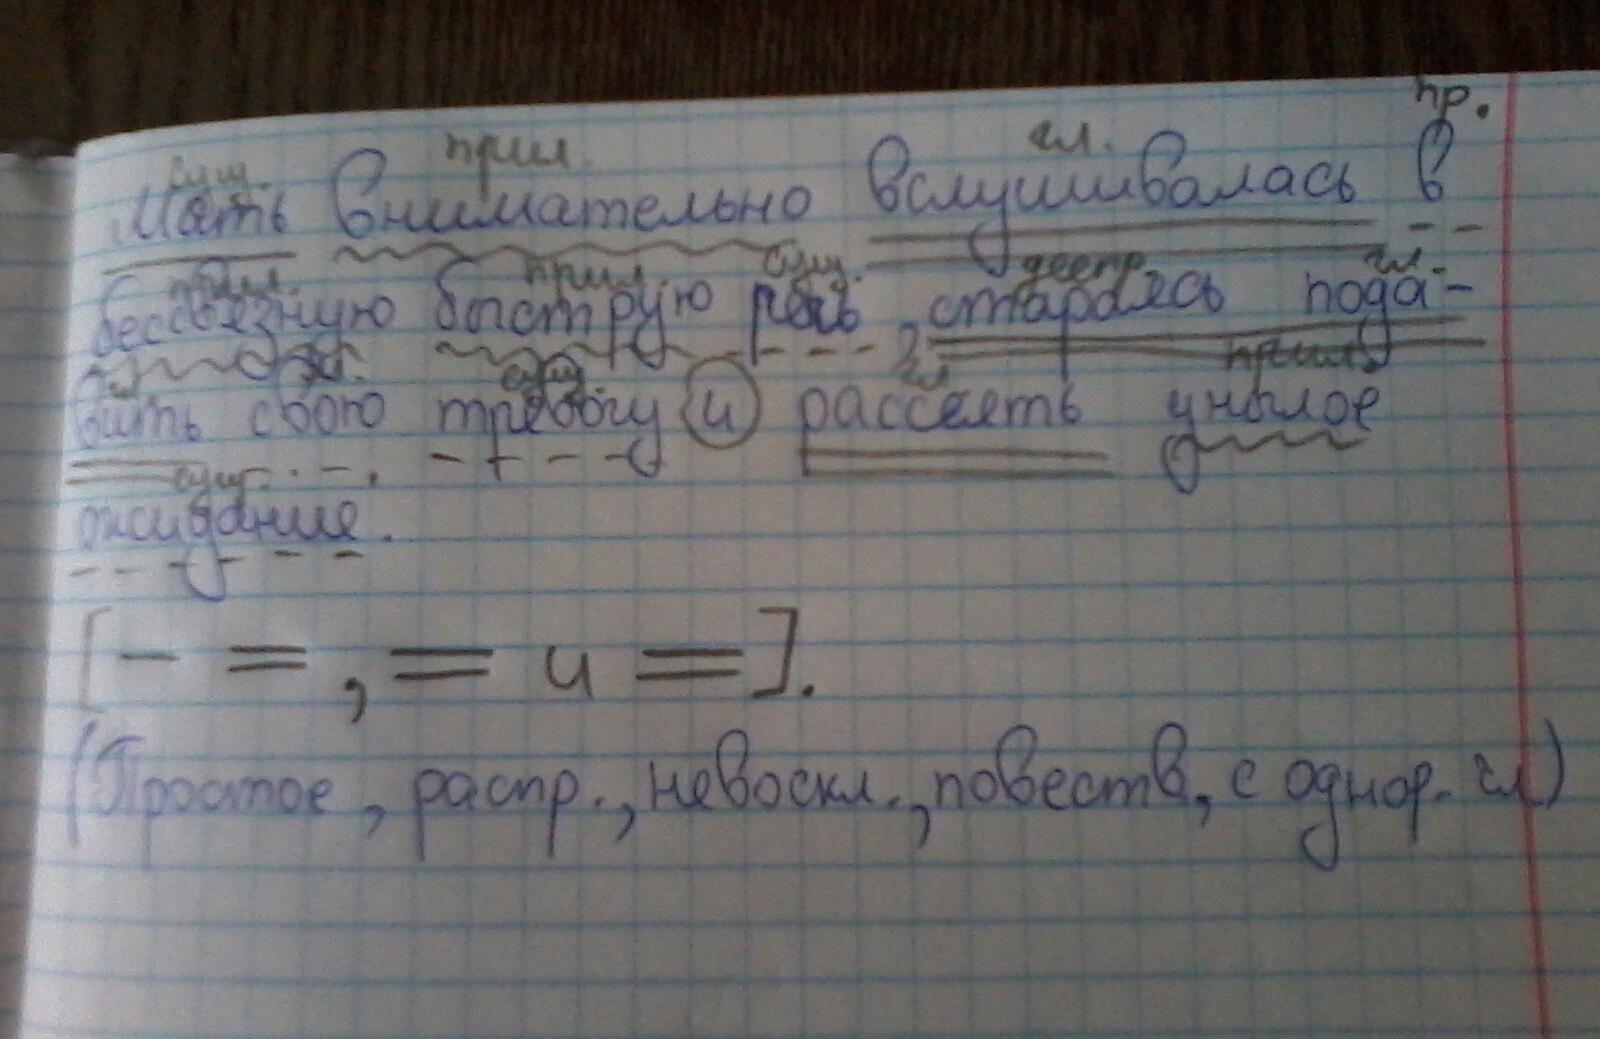 пр.
сущ. прил. гл.
Мать внимательно вслушивалась в
прил. прил. сущ. деепр. гл.
бессвязную быструю речь, стараясь пода-
сущ. гл прил.
вить свою тревогу и рассеять унылое
сущ.
ожидание.
[— =, = и =].
(Простое, распр., невоскл., повеств, с однор. гл)